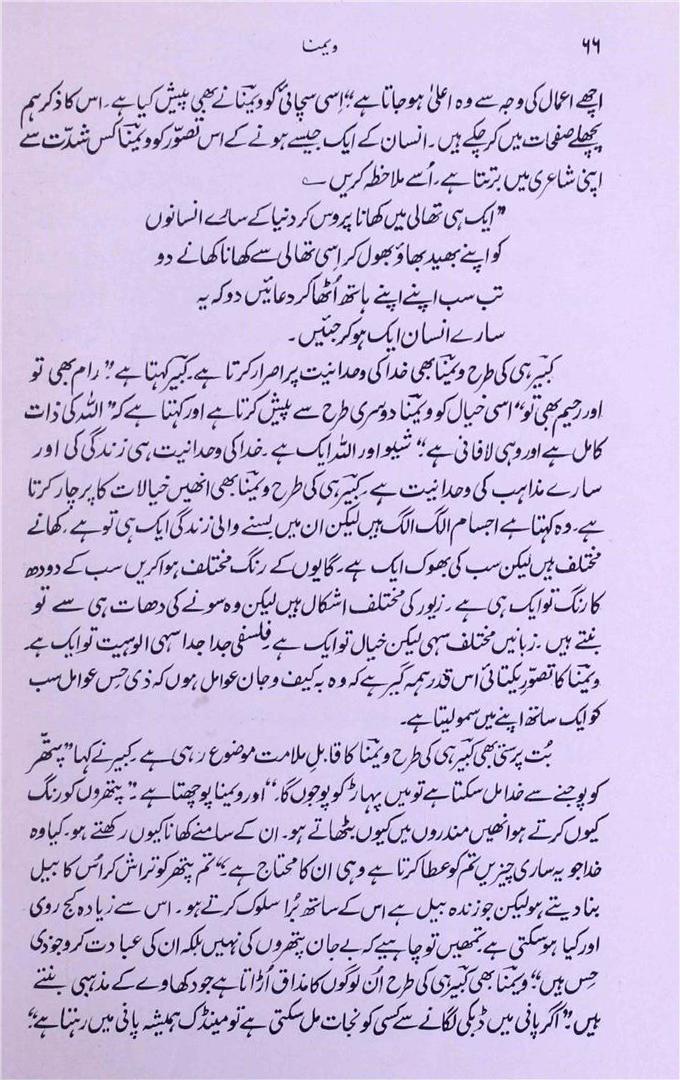 ۶۶ ویمنا
اچھے اعمال کی وجہ سے وہ اعلیٰ ہو جاتا ہے“۔ اِسی سچائی کو ویمنؔا نے بھی پیش کیا ہے۔ اس کا ذکر ہم
پچھلے صفحات میں کر چکے ہیں۔ انسان کے ایک جیسے ہونے کے اس تصوّر کو ویمنؔا کس شدّت سے
اپنی شاعری میں برتتا ہے، اُسے ملاحظہ کریں ؎
”ایک ہی تھالی میں کھانا پروس کر دنیا کے سارے انسانوں
کو اپنے بھید بھاؤ بھول کر اِسی تھالی سے کھانا کھانے دو
تب سب اپنے اپنے ہاتھ اُٹھا کر دعائیں دو کہ یہ
سارے انسان ایک ہو کر جئیں۔
کبیرؔ ہی کی طرح ویمنؔا بھی خدا کی وحدانیت پر اصرار کرتا ہے۔ کبیرؔ کہتا ہے ”رام بھی تو
اور رحیم بھی تو“ اسی خیال کو ویمنؔا دوسری طرح سے پیش کرتا ہے اور کہتا ہے کہ ”اللہ کی ذات
کامل ہے اور وہی لافانی ہے“۔ شیو اور اللہ ایک ہے۔ خدا کی وحدانیت ہی زندگی کی اور
سارے مذاہب کی وحدانیت ہے۔ کبیرؔ ہی کی طرح ویمنؔا بھی انھیں خیالات کا پرچار کرتا
ہے۔ وہ کہتا ہے اجسام الگ الگ ہیں لیکن ان میں بسنے والی زندگی ایک ہی تو ہے، کھانے
مختلف ہیں لیکن سب کی بھوک ایک ہے۔ گایوں کے رنگ مختلف ہوا کریں سب کے دودھ
کا رنگ تو ایک ہی ہے۔ زیور کی مختلف اشکال ہیں لیکن وہ سونے کی دھات ہی سے تو
بنتے ہیں۔ زبانیں مختلف سہی لیکن خیال تو ایک ہے۔ فلسفی جدا جدا سہی الوہیت تو ایک ہے۔
ویمنؔا کا تصوّر یکتائی اس قدر ہمہ گیر ہے کہ وہ بہ کیف و جان عوامل ہوں کہ ذی حِس عوامل سب
کو ایک ساتھ اپنے میں سمو لیتا ہے۔
بُت پرستی بھی کبیرؔ ہی کی طرح ویمنؔا کا قابلِ ملامت موضوع رہی ہے۔ کبیر نے کہا ”پتھّر
کو پوجنے سے خدا مل سکتا ہے تو میں پہاڑ کو پوجوں گا۔“ اور ویمنا پوچھتا ہے۔ ”پتھروں کو رنگ
کیوں کرتے ہو انھیں مندروں میں کیوں بٹھاتے ہو۔ ان کے سامنے کھانا کیوں رکھتے ہو۔ کیا وہ
خدا جو یہ ساری چیزیں تم کو عطا کرتا ہے وہی ان کا محتاج ہے“۔ ”تم پتھر کو تراش کر اُس کا بیل
بنا دیتے ہو لیکن جو زندہ بیل ہے اس کے ساتھ بُرا سلوک کرتے ہو۔ اس سے زیادہ کج روی
اور کیا ہو سکتی ہے۔ تمھیں تو چاہیے کہ بے جان پتھروں کی نہیں بلکہ ان کی عبادت کرو جو ذی
حِس ہیں“۔ ویمنؔا بھی کبیرؔ ہی کی طرح اُن لوگوں کا مذاق اُڑاتا ہے جو دکھاوے کے مذہبی بنتے
ہیں۔ ”اگر پانی میں ڈبکی لگانے سے کسی کو نجات مل سکتی ہے تو مینڈک ہمیشہ پانی میں رہتا ہے“۔